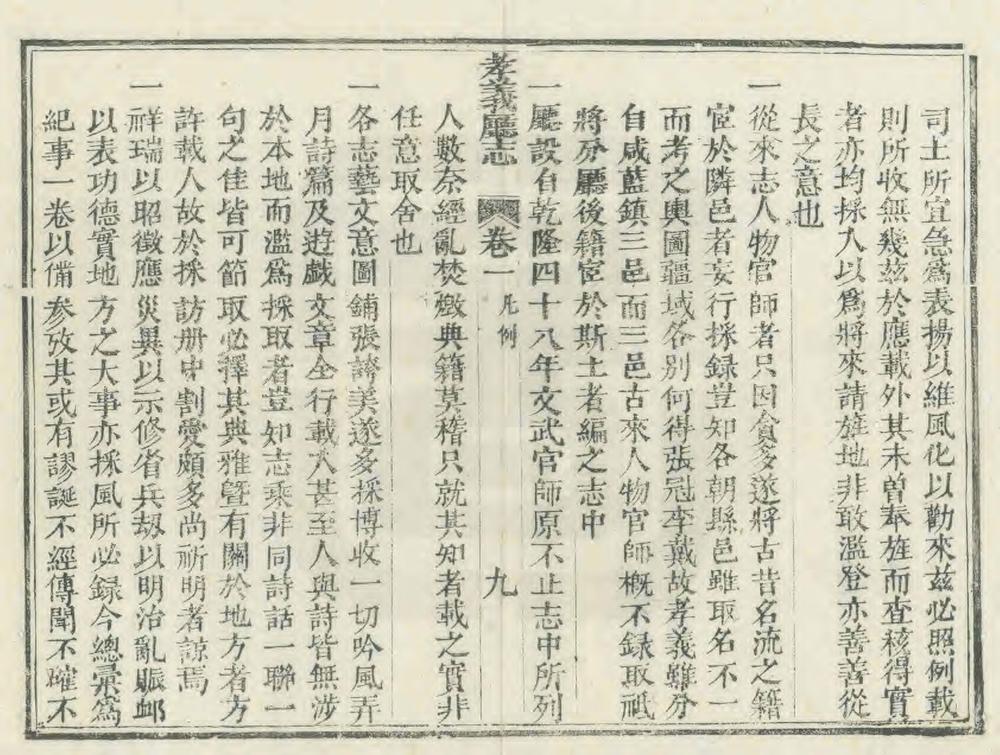 司土所宜急爲表揚以維風化以勸來兹必照例載
則所收無幾兹於應載外其未曽奉旌而查核得實
者亦均採入以爲將來請旌地非敢濫登亦善善從
長之意也
一從來志人物官師者只因貪多遂將古昔名流之籍
宦於隣邑者妄行採録豈知各朝縣邑雖取名不一
而考之輿圖疆域各別何得張冠李戴故孝義雖分
自咸藍鎮三邑而三邑古來人物官師概不録取祗
將分廳後籍宦於斯土者編之志中
一廳設自乾隆四十八年文武官師原不止志中所列
孝義廳志 卷一 凡例 九
人數奈經亂焚燬典籍莫稽只就其知者載之實非
任意取舍也
一各志藝文意圖鋪張誇美遂多採博收一切吟風弄
月詩篇及遊戲文章全行載入甚至人與詩皆無涉
於本地而濫爲採取者豈知志乘非同詩話一聯一
句之佳皆可節取必擇其典雅曁有關於地方者方
許載人故於採訪册中割愛頗多尚祈明者諒焉
一祥瑞以昭徵應災異以示修省兵刼以明治亂賑䘏
以表功德實地方之大事亦採風所必録今總彙爲
紀事一卷以俻參攷其或有謬誕不經傳聞不確不